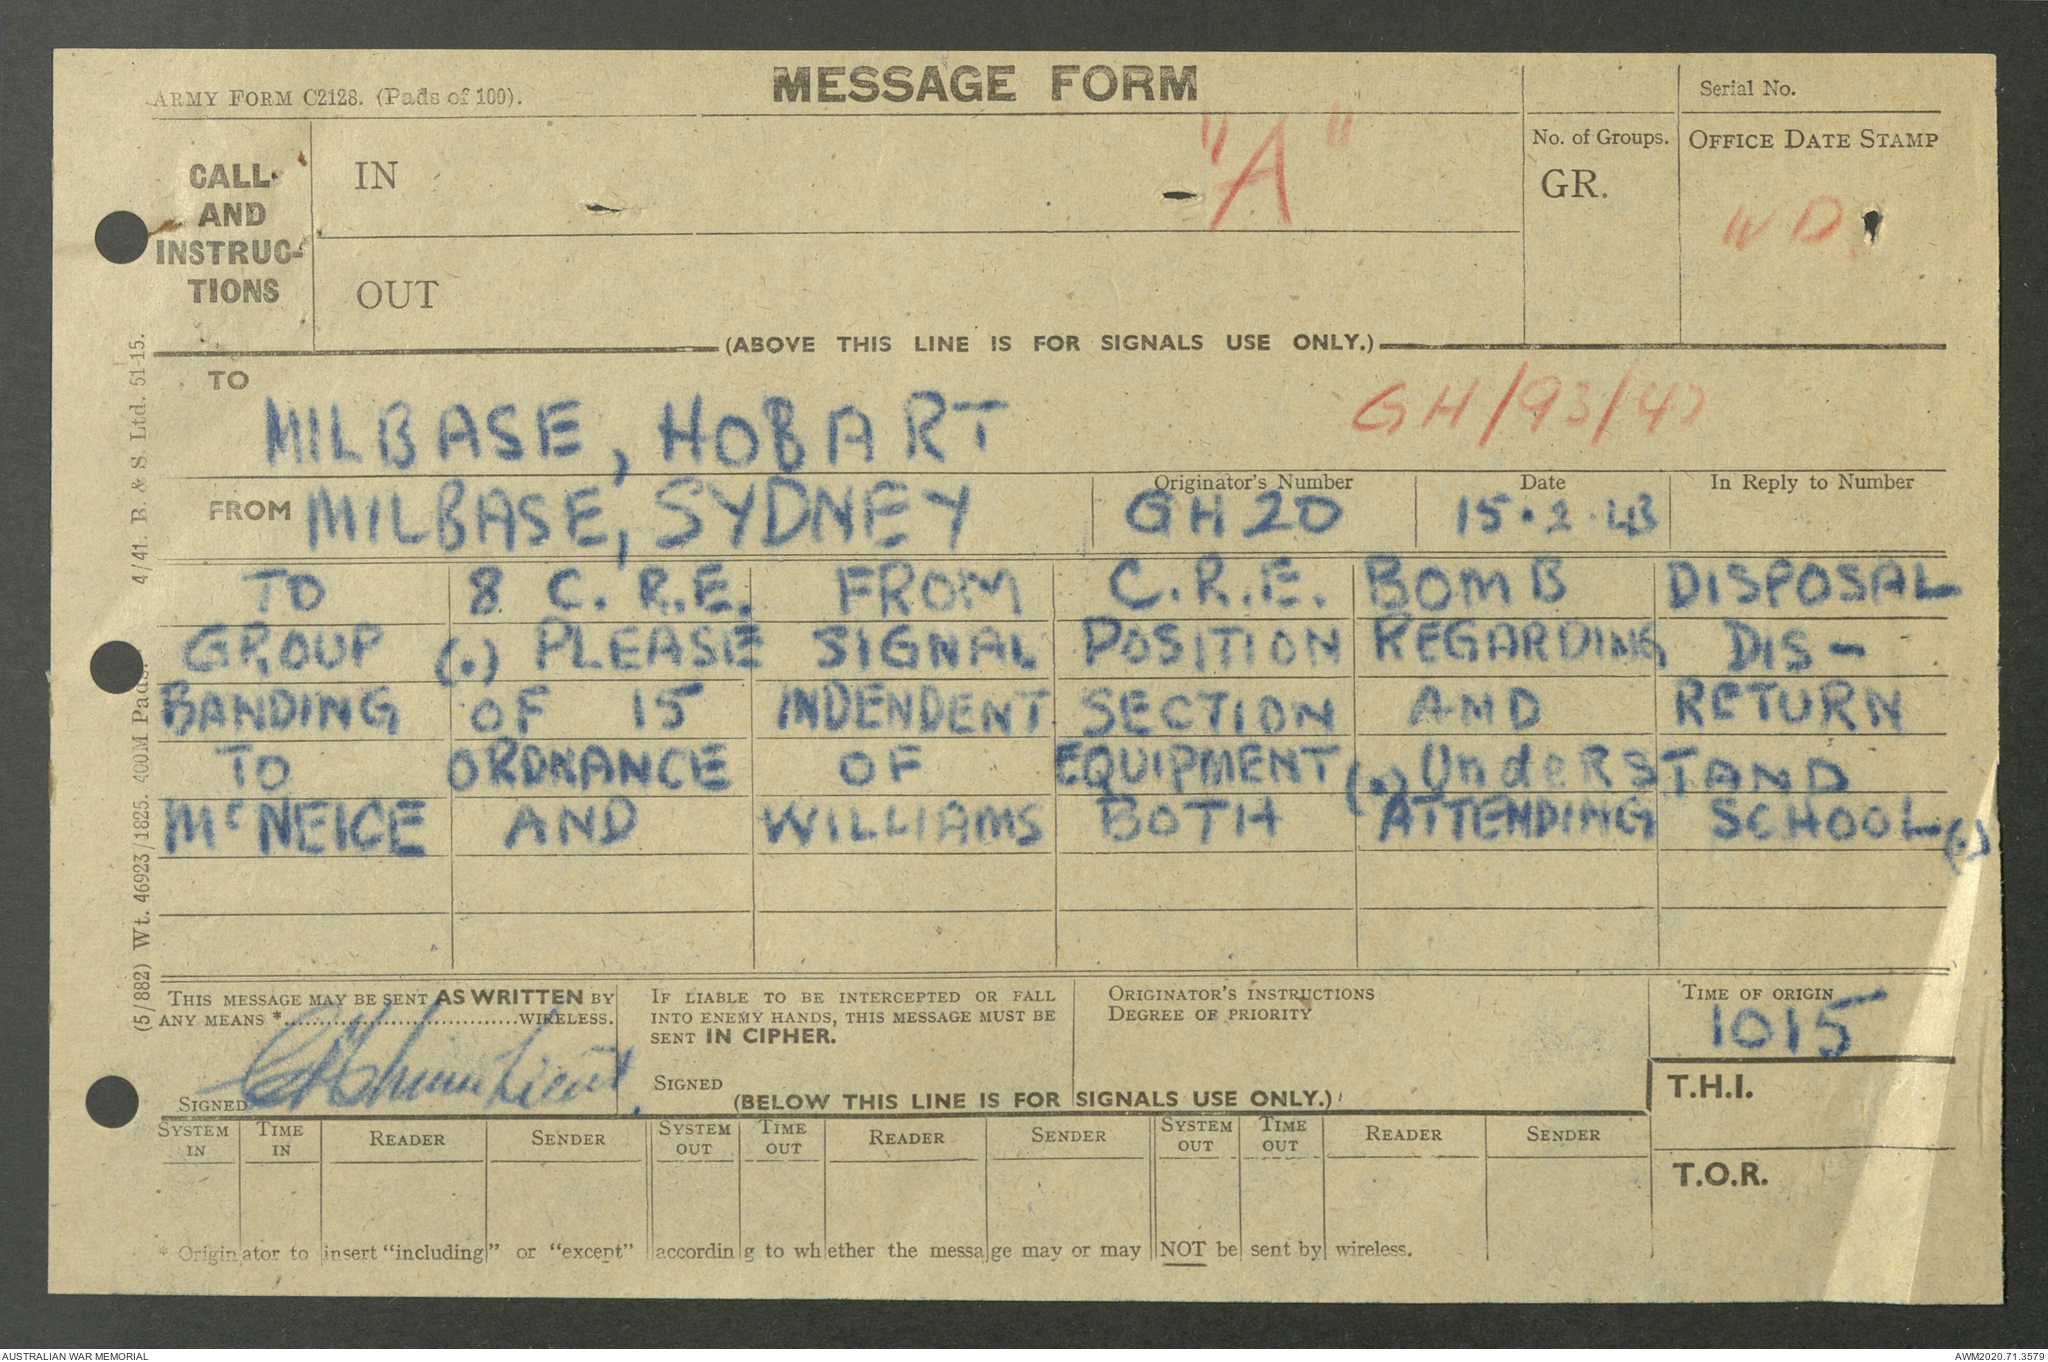 ARMY FORM C2128. (Pads of 100).
MESSAGE FORM
Serial No.
CALL
AND
INSTRUC-
TIONS
IN
"A"
No. of Groups.
GR.
OFFICE DATE STAMP
OUT
(ABOVE THIS LINE IS FOR SIGNALS USE ONLY.)
TO
MILBASE, HOBART
GH/93/43
FROM MILBASE, SYDNEY
Originator's Number
GH20
Date
15.2.43
In Reply to Number
TO 8 C.R.E. FROM C.R.E. BOMB DISPOSAL
GROUP (.) PLEASE SIGNAL POSITION REGARDING DIS-
BANDING OF 15 INDENDENT SECTION AND RETURN
TO ORDNANCE OF EQUIPMENT (.) UndeRSTAND
McNEICE AND WILLIAMS BOTH ATTENDING SCHOOL (.)
(5/882) Wt. 46923/1825. 400M Pads. 4/41. B. & S. Ltd. 51-15.
THIS MESSAGE MAY BE SENT AS WRITTEN BY
ANY MEANS *..............................WIRELESS.
SIGNED
IF LIABLE TO BE INTERCEPTED OR FALL
INTO ENEMY HANDS, THIS MESSAGE MUST BE
SENT IN CIPHER.
SIGNED
ORIGINATOR'S INSTRUCTIONS
DEGREE OF PRIORITY
TIME OF ORIGIN
1015
(BELOW THIS LINE IS FOR SIGNALS USE ONLY.)
T.H.I.
SYSTEM IN
TIME IN
READER
SENDER
SYSTEM OUT
TIME OUT
READER
SENDER
SYSTEM OUT
TIME OUT
READER
SENDER
T.O.R.
* Originator to insert "including" or "except" according to whether the message may or may NOT be sent by wireless.
AUSTRALIAN WAR MEMORIAL
AWM2020.71.3579